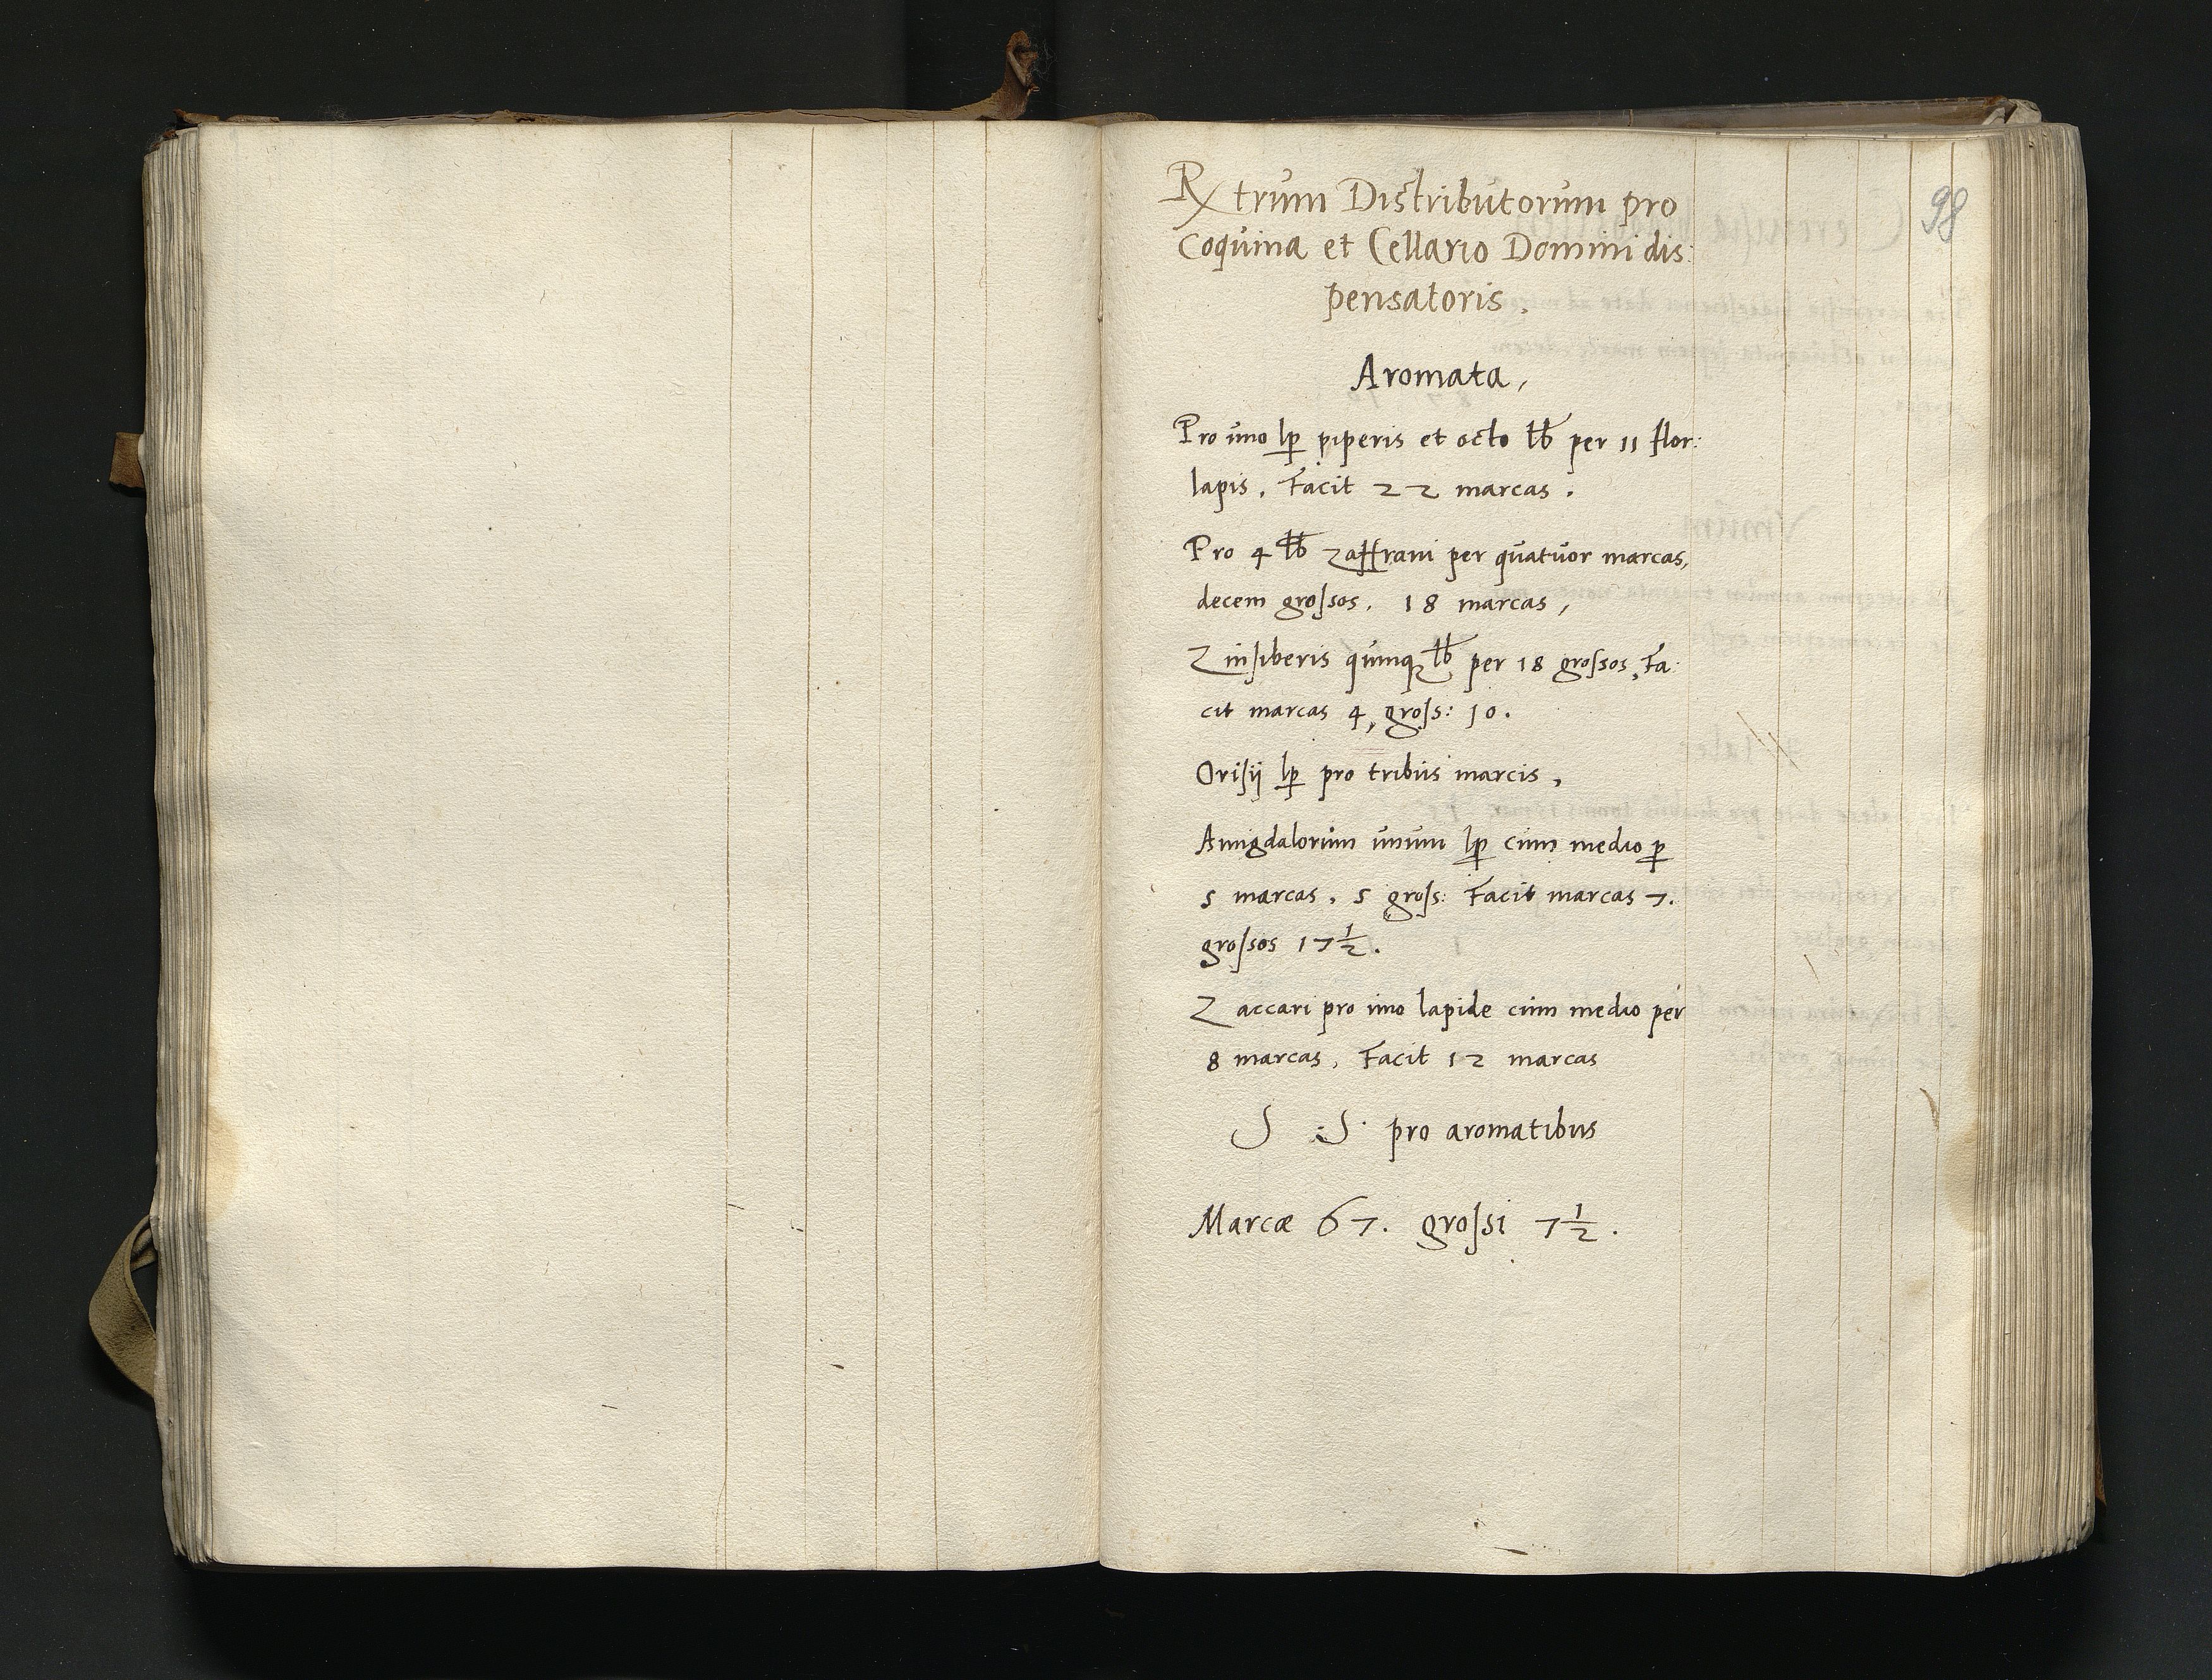 98
Rx trum Distributorum pro
Coquina et Cellario Domini dis:
pensatoris.
Aromata,
Pro uno lp piperis et octo lb per 11 flor:
lapis. Facit 22 marcas.
Pro 4 lb zaffrani per quatuor marcas,
decem grossos. 18 marcas,
Zinsiberis quinq lb per 18 grossos, Fa:
cit marcas 4, gross: 10.
Orisij lp pro tribus marcis,
Amigdalorum unum lp cum medio p
5 marcas, 5 gross: Facit marcas 7.
grossos 17 1/2.
Zaccari pro uno lapide cum medio per
8 marcas, Facit 12 marcas
S :S· pro aromatibus
Marcæ 67. grossi 7 1/2.